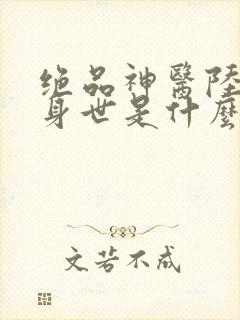 绝品神醫陸
身世是什麼
文若不成